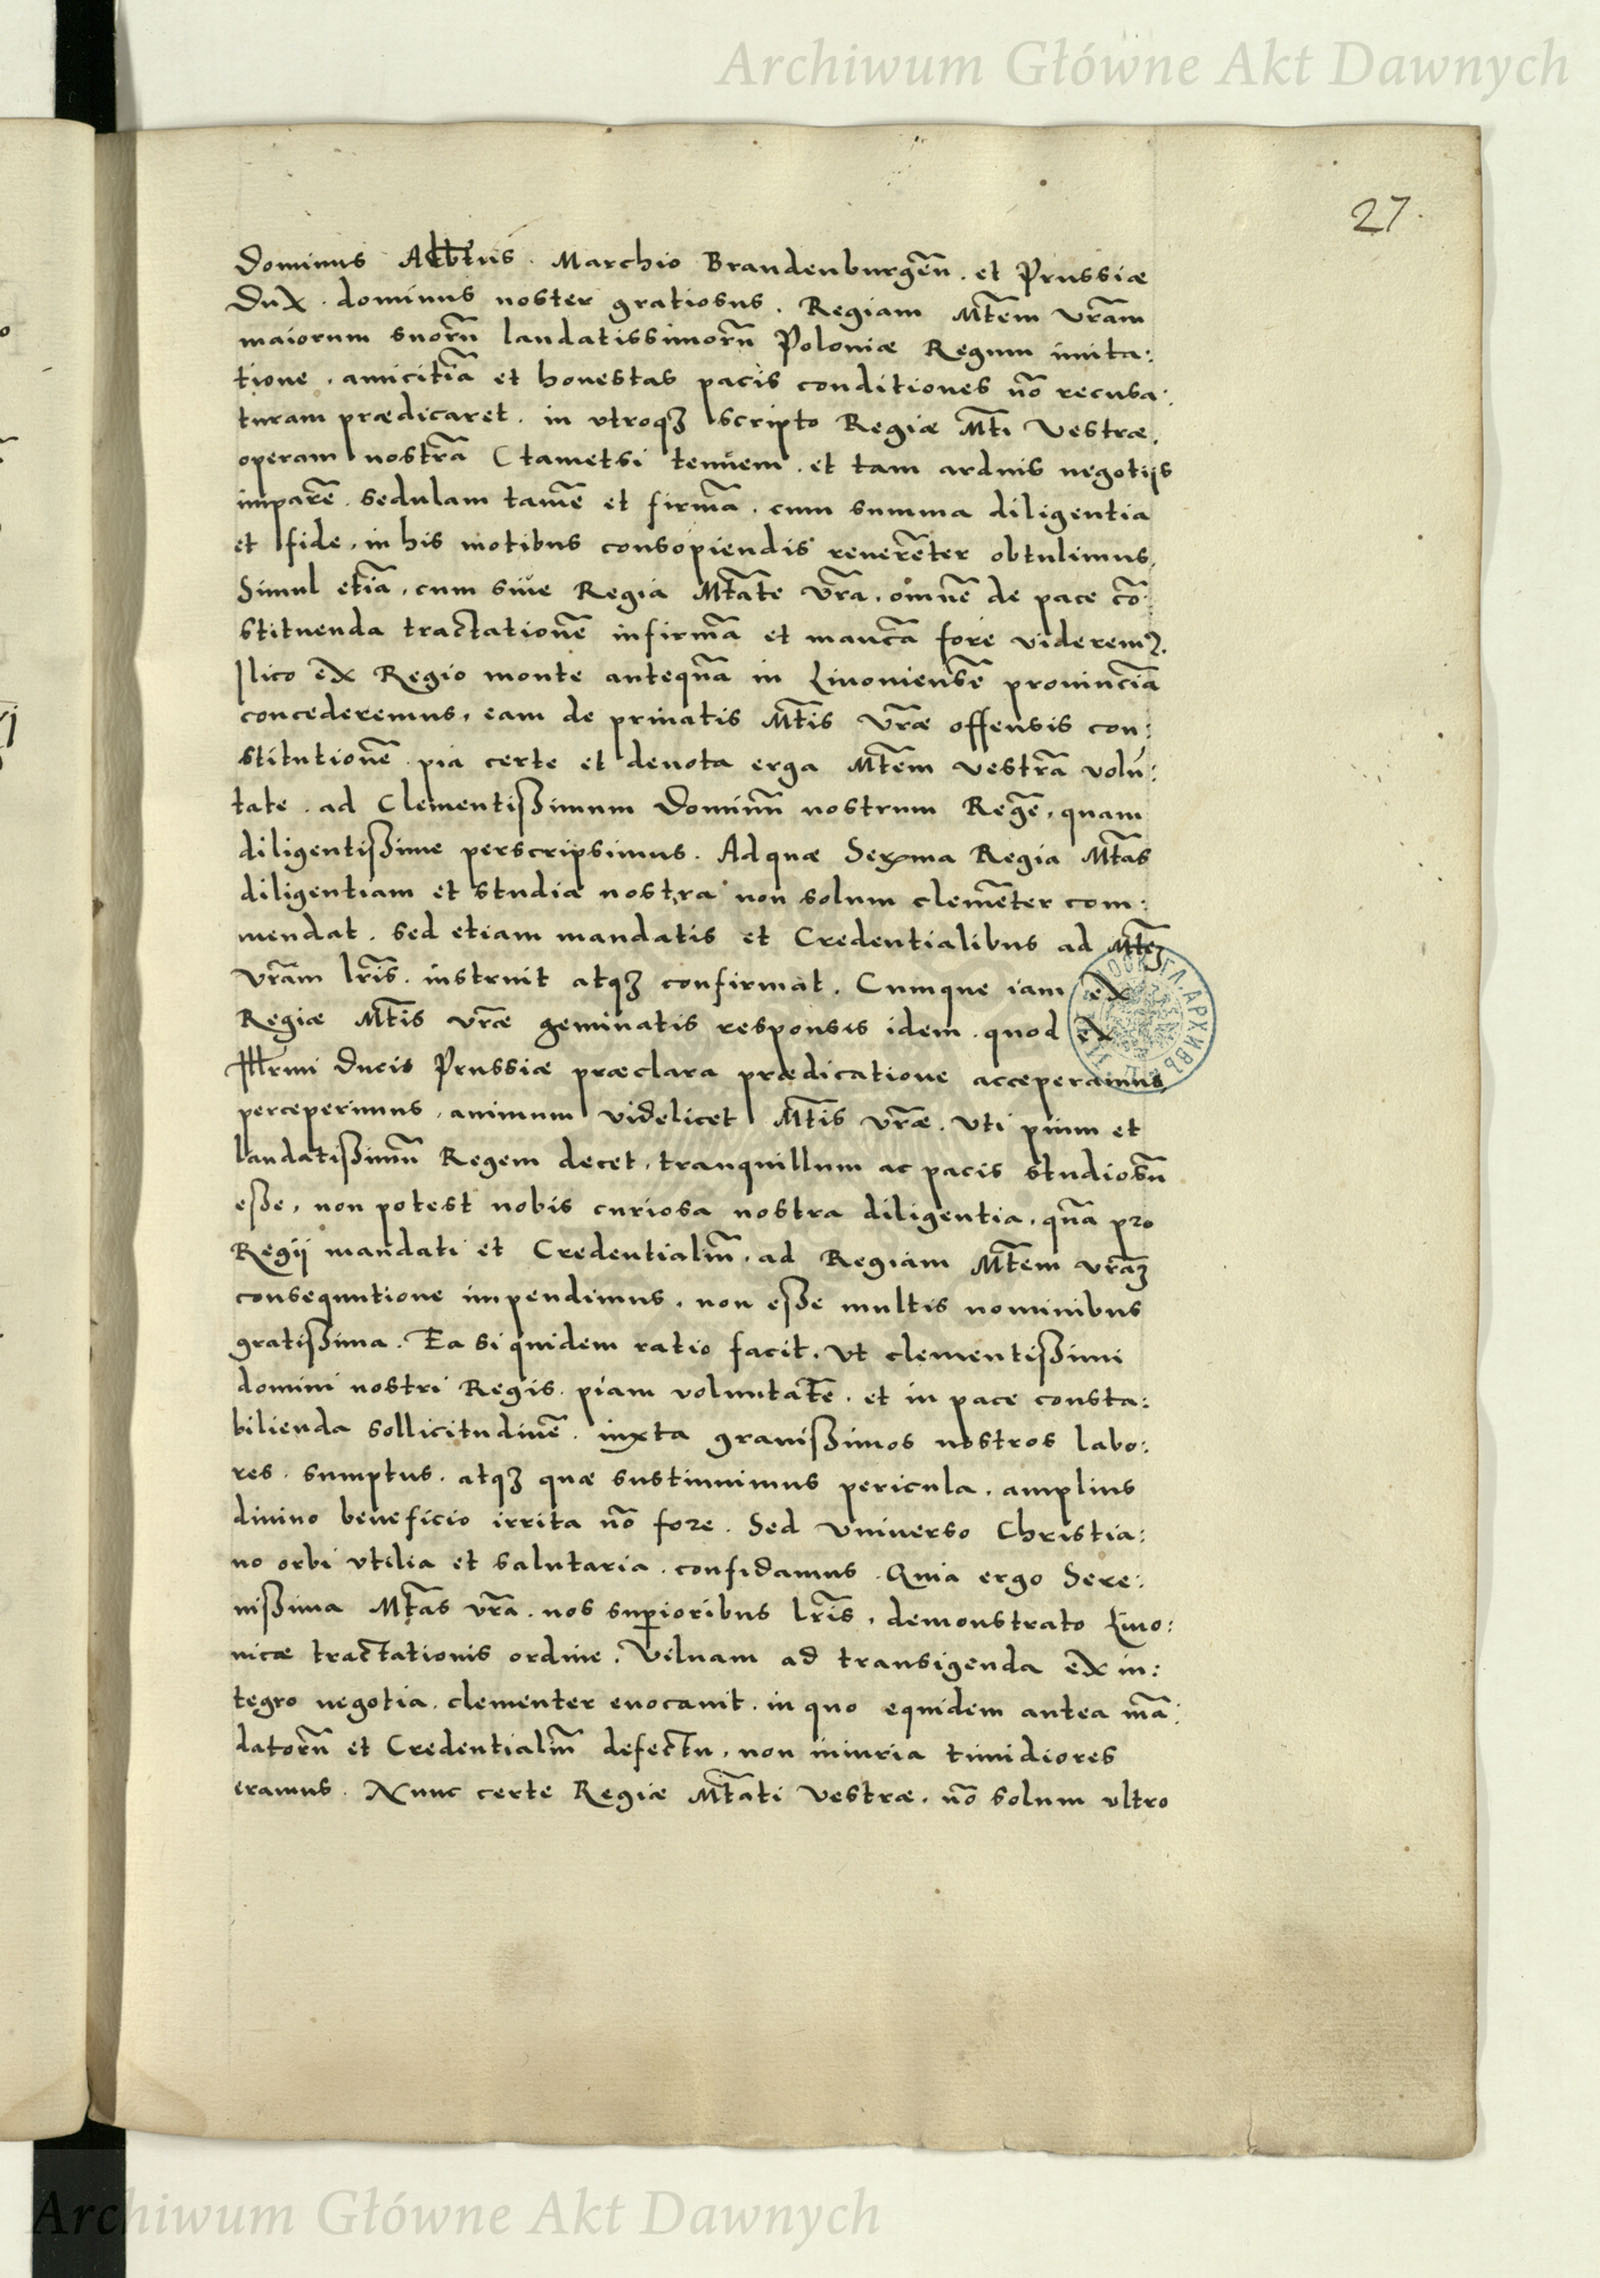 Archiwum Główne Akt Dawnych
27.
Dominus Albtus. Marchio Brandenburgeñ. et Prussiæ
Dux. dominus noster gratiosus. Regiam Mtem vram
maiorum suorũ laudatissimorũ Poloniæ Regum imita:
tione, amicitiã et honestas pacis conditiones nõ recusa:
turam prædicaret. in vtroqꝫ scripto Regiæ Mti Vestræ,
operam nostrã (tametsi tenuem. et tam arduis negotijs
imparẽ. sedulam tamẽ et firmã. cum summa diligentia
et fide, in his motibus consopiendis reuerẽter obtulimus.
Simul etiã, cum siue Regia Mtate vra. omnẽ de pace cõ:
stituenda tractationẽ infirmã et mancã fore viderem9.
Ilico ex Regio monte anteqnã in Liuoniensẽ prouinciã
concederemus, eam de priuatis Mtis vræ offensis con:
stitutionẽ. pia certe et deuota erga Mtem vestrã volũ:
tate. ad Clementißimum Dominũ nostrum Regẽ, quam
diligentißime perscripsimus. Ad quæ Serma Regia Mtas
diligentiam et studiæ nostra non solum clemẽter com:
mendat. sed etiam mandatis et Credentialibus ad Mteꝫ
vram lris. instruit atqꝫ confirmat. Cumque iam ex
Regiæ Mtis vræ geminatis responsis idem. quod ex
Illrmi Ducis Prussiæ præclara prædicatione acceperamus
perceperimus, animum videlicet Mtis vræ. vti pium et
laudatißimũ Regem decet, tranquillum ac pacis studiosũ
eße, non potest nobis curiosa nostra diligentia, qnã pro
Regij mandati et Credentialiũ. ad Regiam Mtem vramꝫ
consequutione impendimus, non eße multis nominibus
gratißima. Ea si quidem ratio facit. Vt clementißimi
domini nostri Regis. piam voluntatẽ. et in pace consta:
bilienda sollicitudinẽ. iuxta grauißimos nostros labo:
res. sumptus. atqꝫ quæ sustinuimus pericula. amplius
diuino beneficio irrita nõ fore. Sed vniuerso Christia:
no orbi vtilia et salutaria. confidamus. Quia ergo Sere:
nißima Mtas vra. nos superioribus lris, demonstrato Liuo:
nicæ tractationis ordine. Vilnam ad transigenda ex in:
tegro negotia. clementer euocauit. in quo equidem antea mã:
datorũ et Credentialiũ defectu, non iniuria timidiores
eramus. Nunc certe Regiæ Mtati Vestræ. nõ solum vltro
Archiwum Główne Akt Dawnych